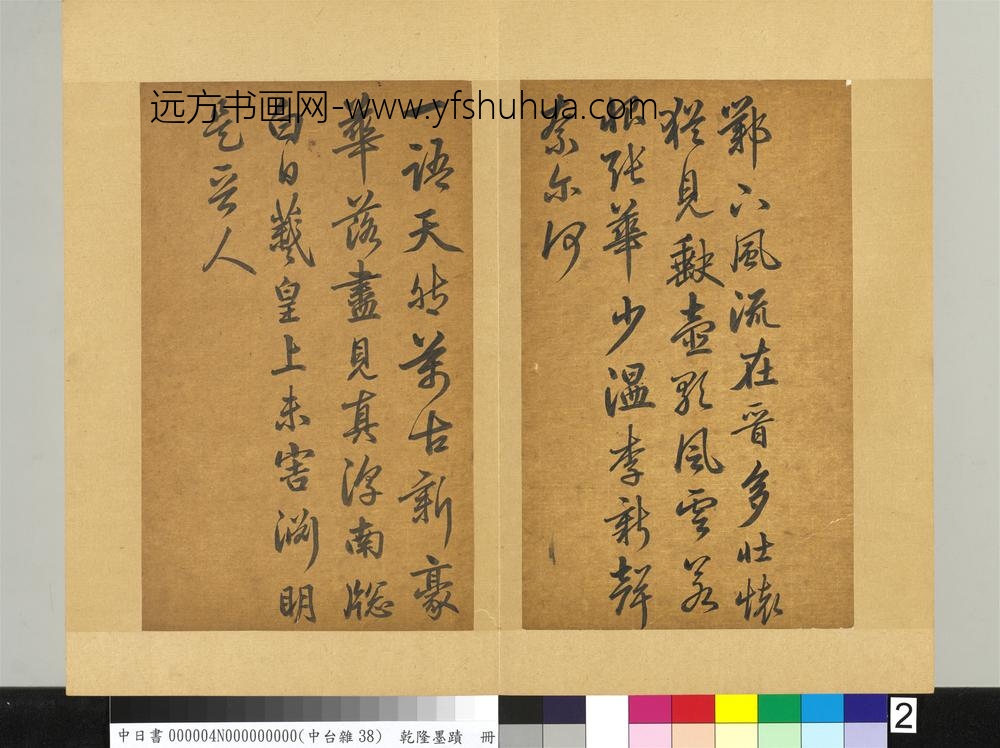 远方书画网-www.yfshuhua.com
鄴下風流在晉多壯懷
猶見缺壺歌風雲若
恨張華少溫李新聲
奈尔何
一語天然萬古新豪
華落盡見真淳南牕
白日羲皇上未害淵明
是晉人
中日書 000004N000000000(中台雜 38) 乾隆墨蹟 冊
2